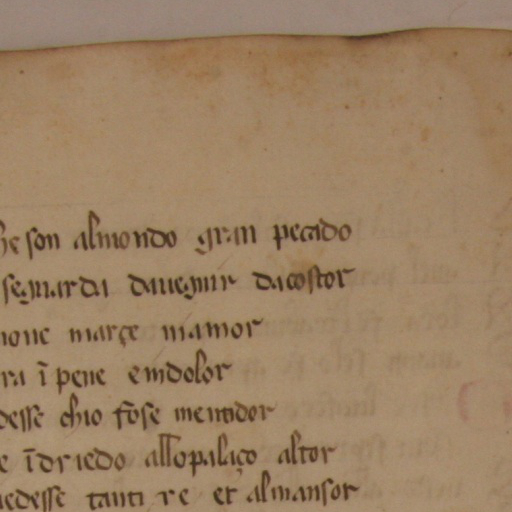 he son almondo gran pecado
seguarda daueguir dacostor
noue março mamor
ra ī pene emdolor
desse chio fose mentidor
e īdriedo allopalaço altor
uedesse tanti re et almansor